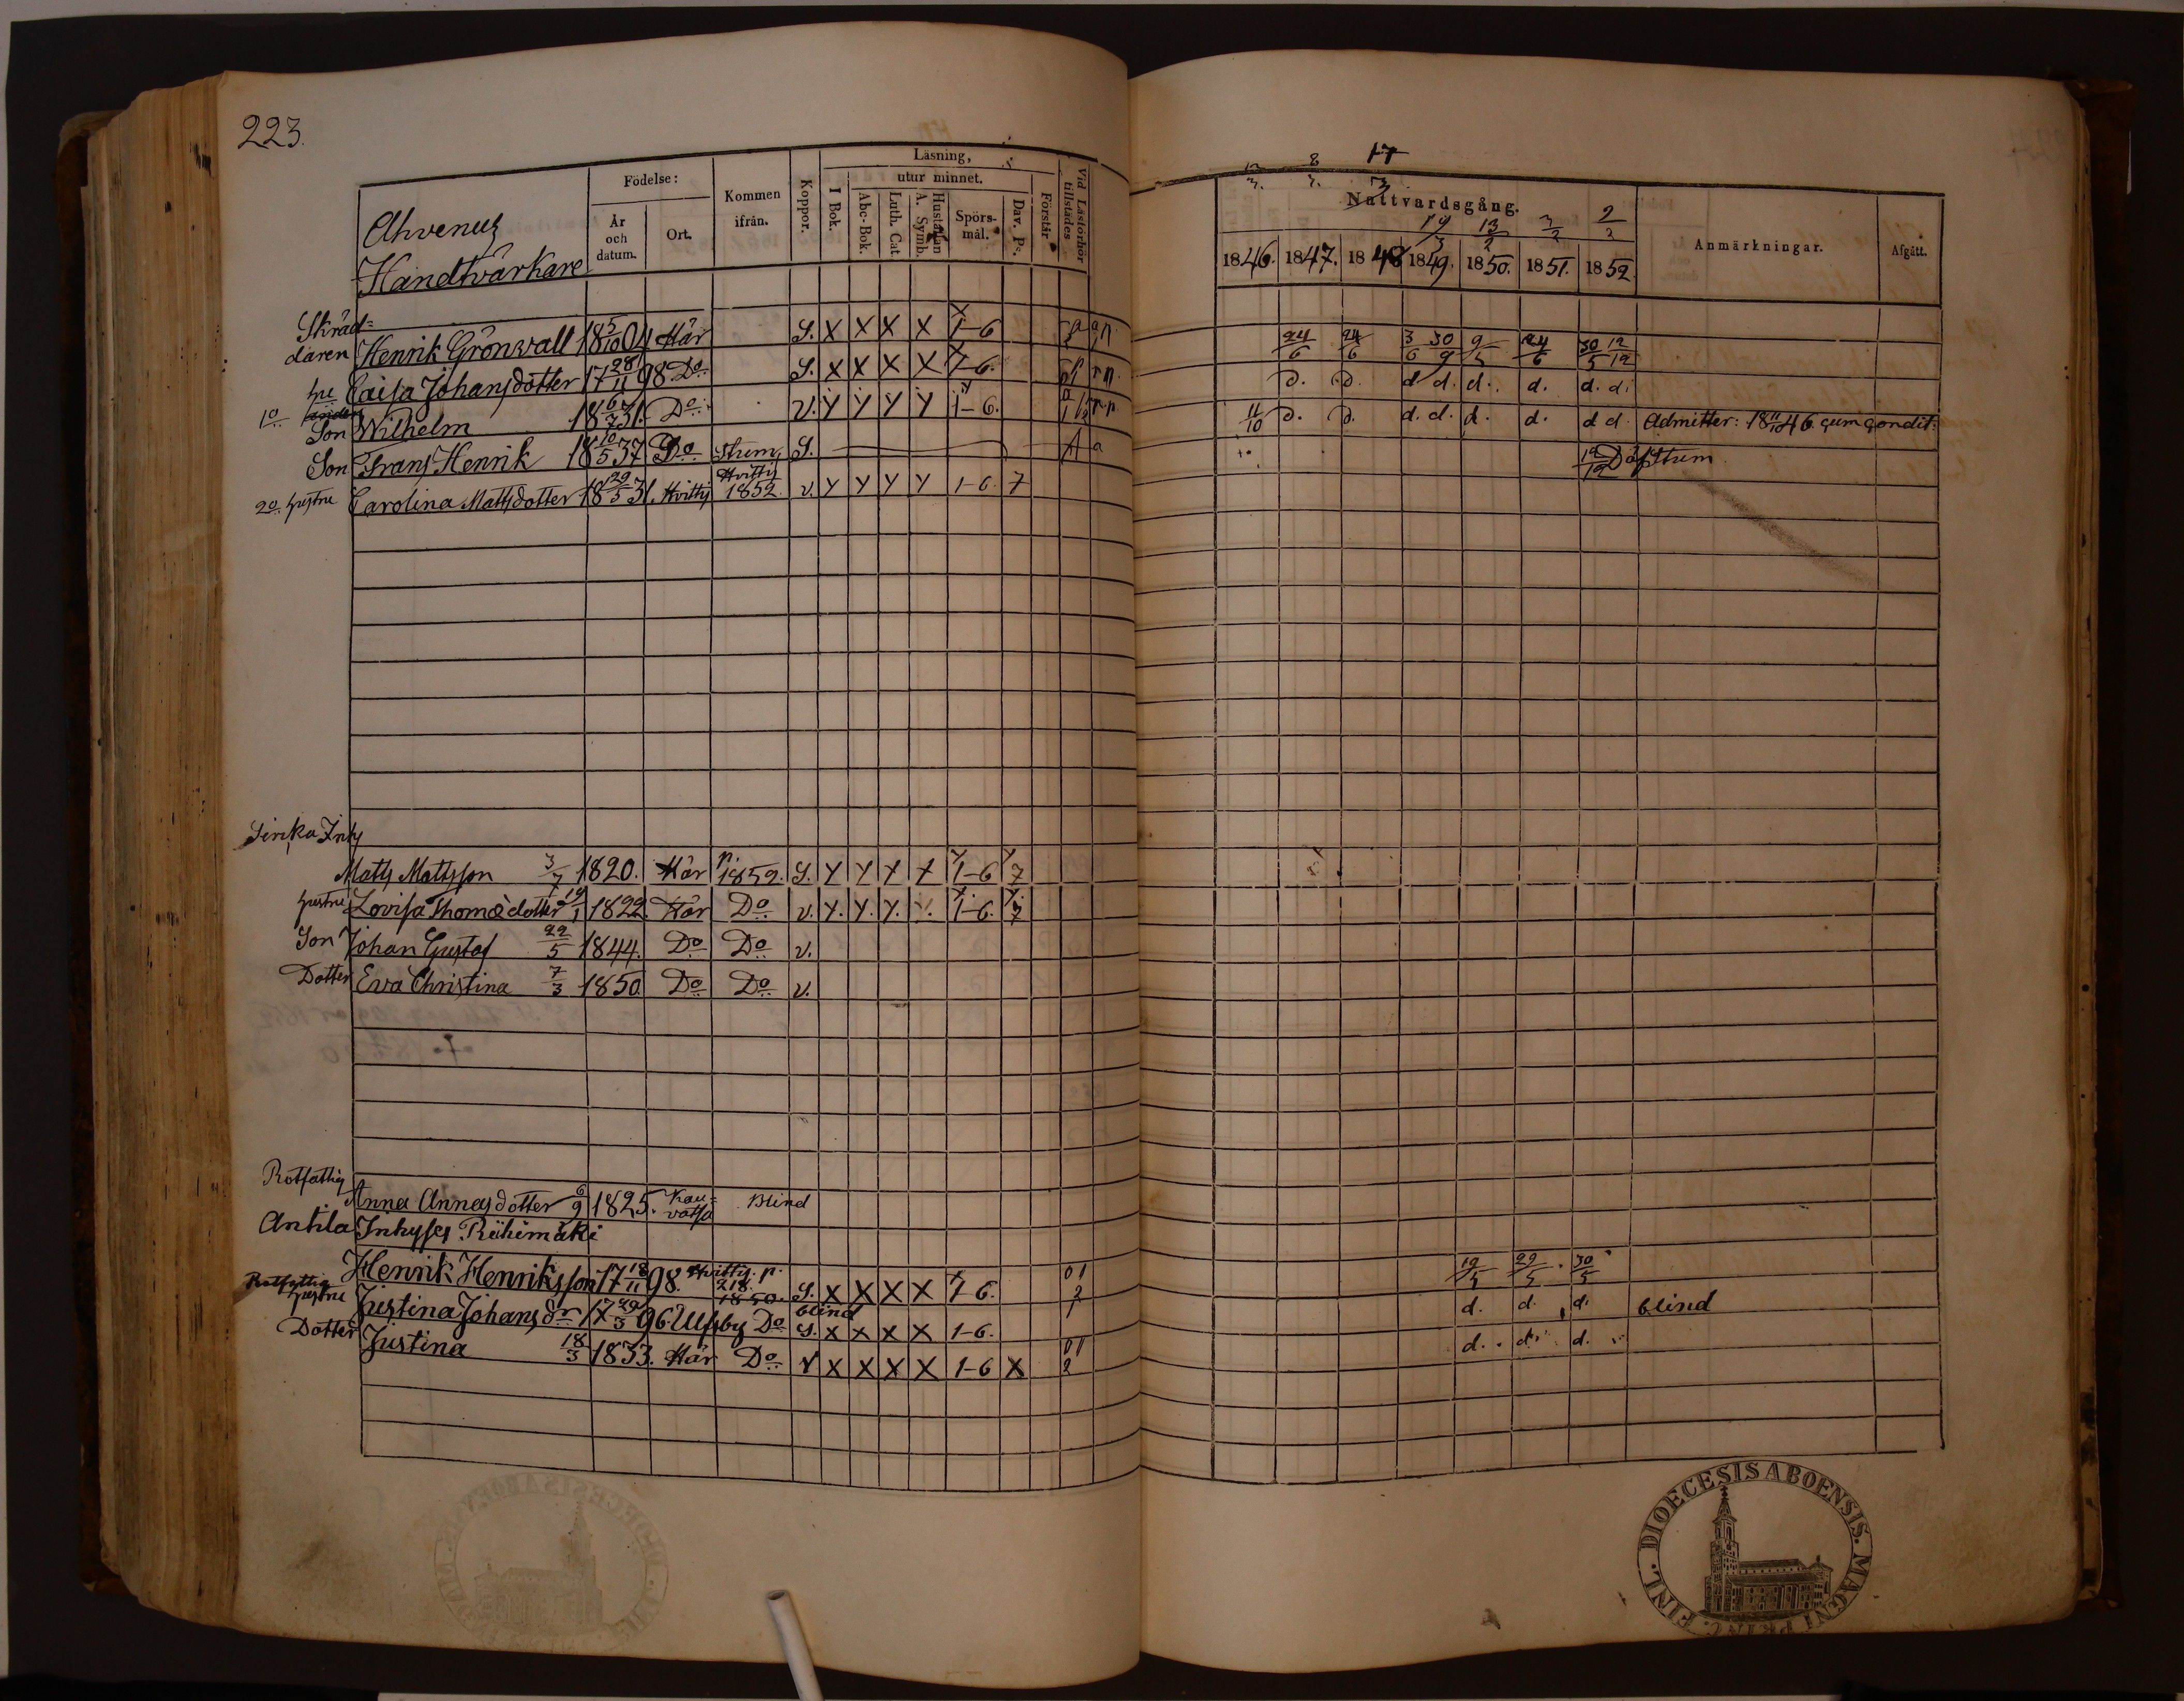 223.
Ahvenus
Handtvärkare
Födelse:
År och datum.
Ort.
Kommen ifrån.
Koppor.
Läsning,
utur minnet.
I Bok.
Abc-Bok.
Luth. Cat
Hustaflan A. Symb.
Spörs-mål.
Dav. Ps.
Förstår
Vid Läsförhör tillstädes
Skräd=
daren Henrik Grönwall 18 5/10 04 Här S. X X X X 1-6
hu Caisa Johansdotter 17 28/11 98. Do S. X X X X 1-6.
1o Son Wilhelm 18 6/7 31. Do v. Y Y Y Y 1-6.
Son Frans Henrik 18 10/5 37 Do Strum, S. A a
2o hustru Carolina Mattsdotter 18 29/5 31. Hvittis Hvittis 1852. v. Y Y Y Y 1-6. 7
Matts Mattsson 3/7 1820. Här p. 1852. S. Y Y Y X 1-6 7
hustru Lovisa Thomædotter 1822. Här Do v. Y. Y. Y. Y. 1-6. 7
Son Johan Gustaf 22/5 1844. Do Do v.
Dotter Eva Christina 7/3 1850. Do Do v.
Rotfattig
Anna Annasdotter 6/9 1825. Kau=vatsa Blind
Antila Inhyses Riihimäki
Henrik Henriksson 17 18/11 98. Hvittis. p. 218. 1850. S. X X X X 1-6. 01 2
Rotfattig hustru Justina Johansdr 17 29/3 96. Ulfsby Do blind S. X X X X 1-6.
Dotter Justina 18/3 1833. Här Do v X X X X 1-6 X 01 2
17
Nattvardsgång.
19/3 13/2 3/2 2/2
1846. 1847. 1848 1849. 1850. 1851. 1852.
Anmärkningar.
Afgått.
24/6 24/6 3/6 30/9 9/5 24/6 30/5 12/12
d. d. d. d. d. d. d. d.
11/10 d. d. d. d. d. d. d d. Admitter: 18 11/10 46. cum condit:
12/12
12/5 29/5 30/5
d. d. d. blind
d. d. d.
DIOECESIS ABOENSIS. MAGNI PRINC. FINL.